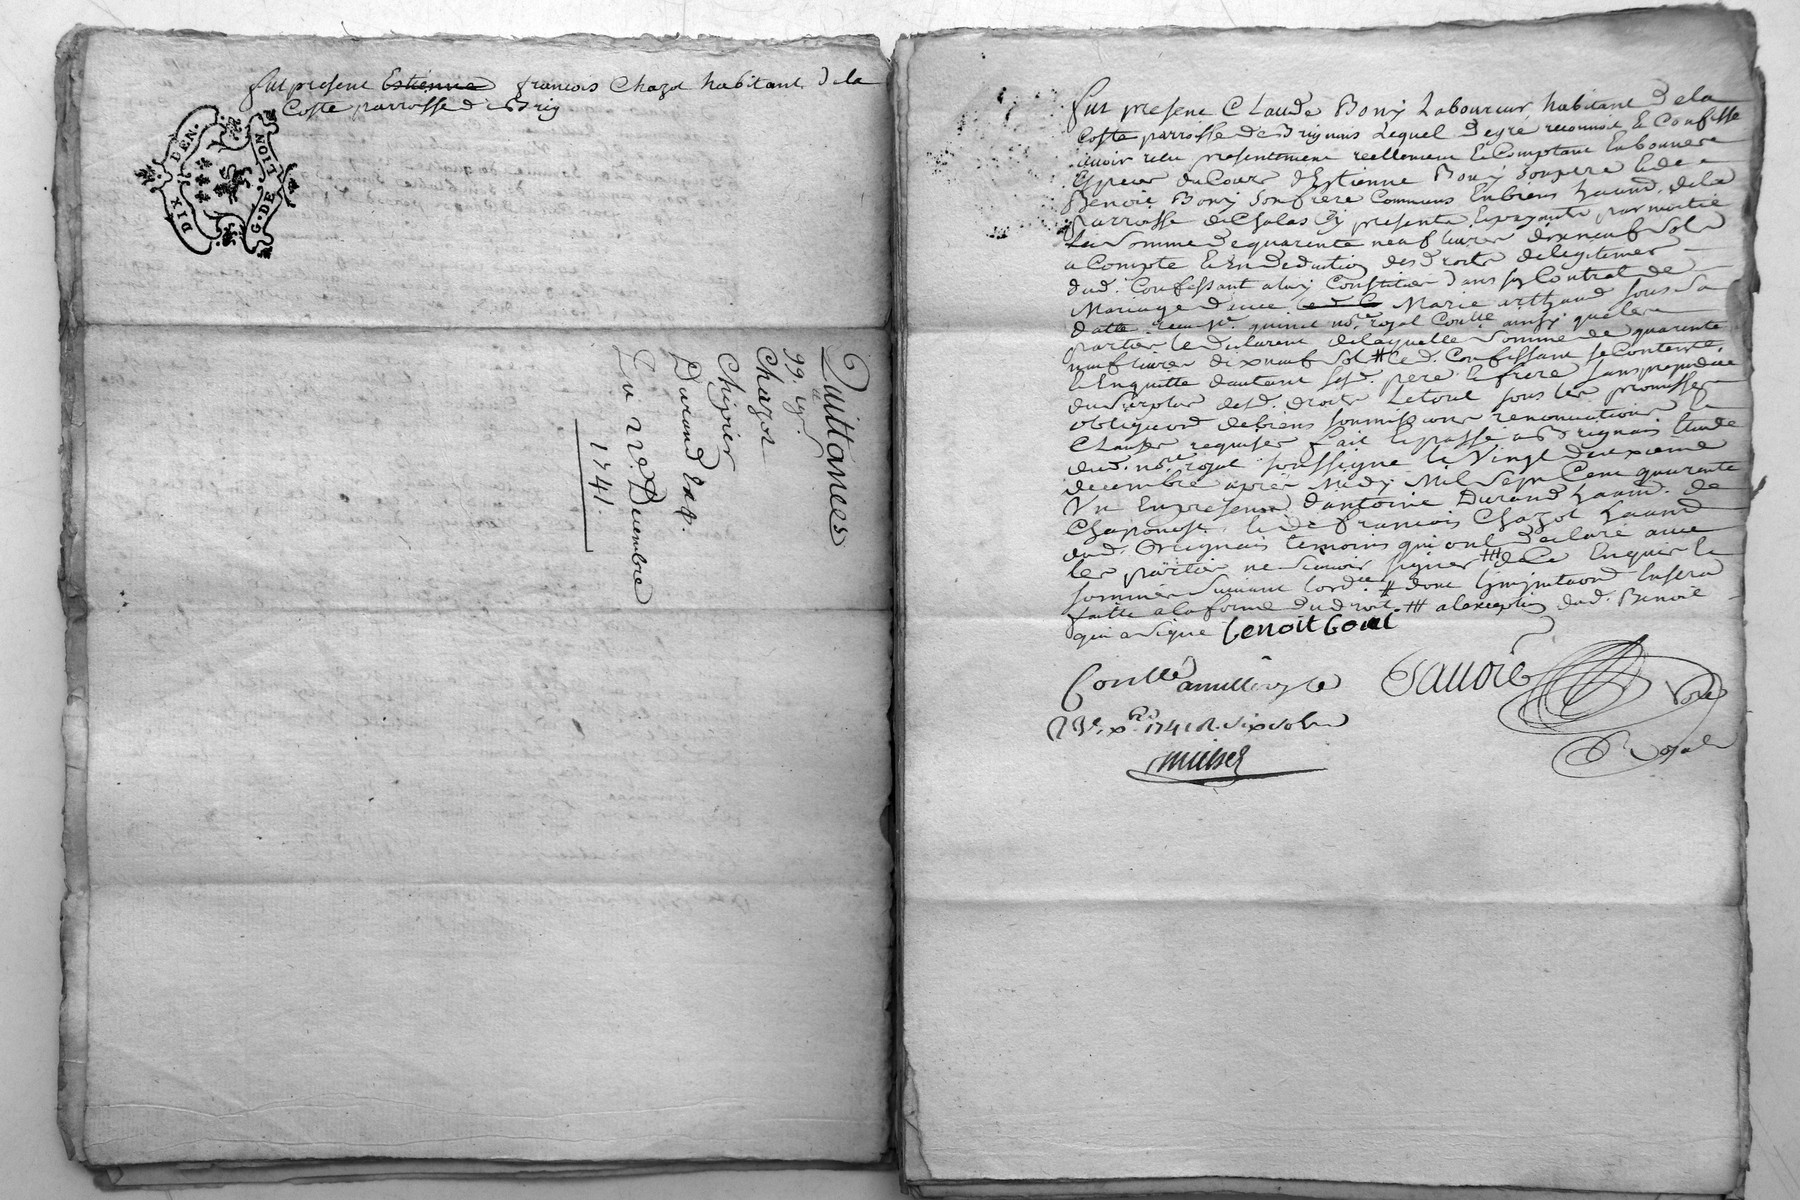 fut present Estienne francois Chazot habitant de la
Coste parroisse de Brig
DIX DEN.
G. DE LION
Quittances
99.
Chazot
Chipier
Durand
Du 22e. Decembre
1741.
fut present Claude Bony Laboureur, habitant de la
Coste parroisse de Brignais Lequel degré reconnoit & Confesse
avoir receu presentement reellement & Comptant En bonnes
Especes du Cours d'Estienne Bony son pere & de
Benoit Bony son frere Communs En biens habitt. de la
parroisse de Chalas Cy presents & payants par moitié
La Somme de quarente neuf livres dix neuf Sols
a Compte & En deduction des droits de legitimes
dud. Confessant a luy Constitués dans son Contrat de
Mariage avec led C Marie arthaud sous Sa
datte receu Me. not. re royal Coullé ainsy que les
parties le declarent de laquelle Somme de quarente
neuf livres dix neuf Sols # led. Confessant se Contente
& En quitte d'autant sesd. pere & frere sans prejudice
du Surplus desd. droits Le tout sous les promesses
obligaons de biens soumissions renonciations &
Clauses requises fait & passé a Brignais Etude
dud. no.re royal soussigné le Vingt deuxieme
decembre apres Midy Mil Sept Cent quarente
Un En presence d'antoine Durand habitt. de
Chaponost, & de francois Chazot habitt
dud. Brignais temoins qui ont declaré avec
les parties ne Scavoir signer ## de Ce Enquis &
sommés Suivant lord.ce # dont insinuaon En sera
faitte a la forme du droit. ## a l'exception dud. Benoit
qui a Signé benoit boni
Coullé
1741 R. Six sols
Royal